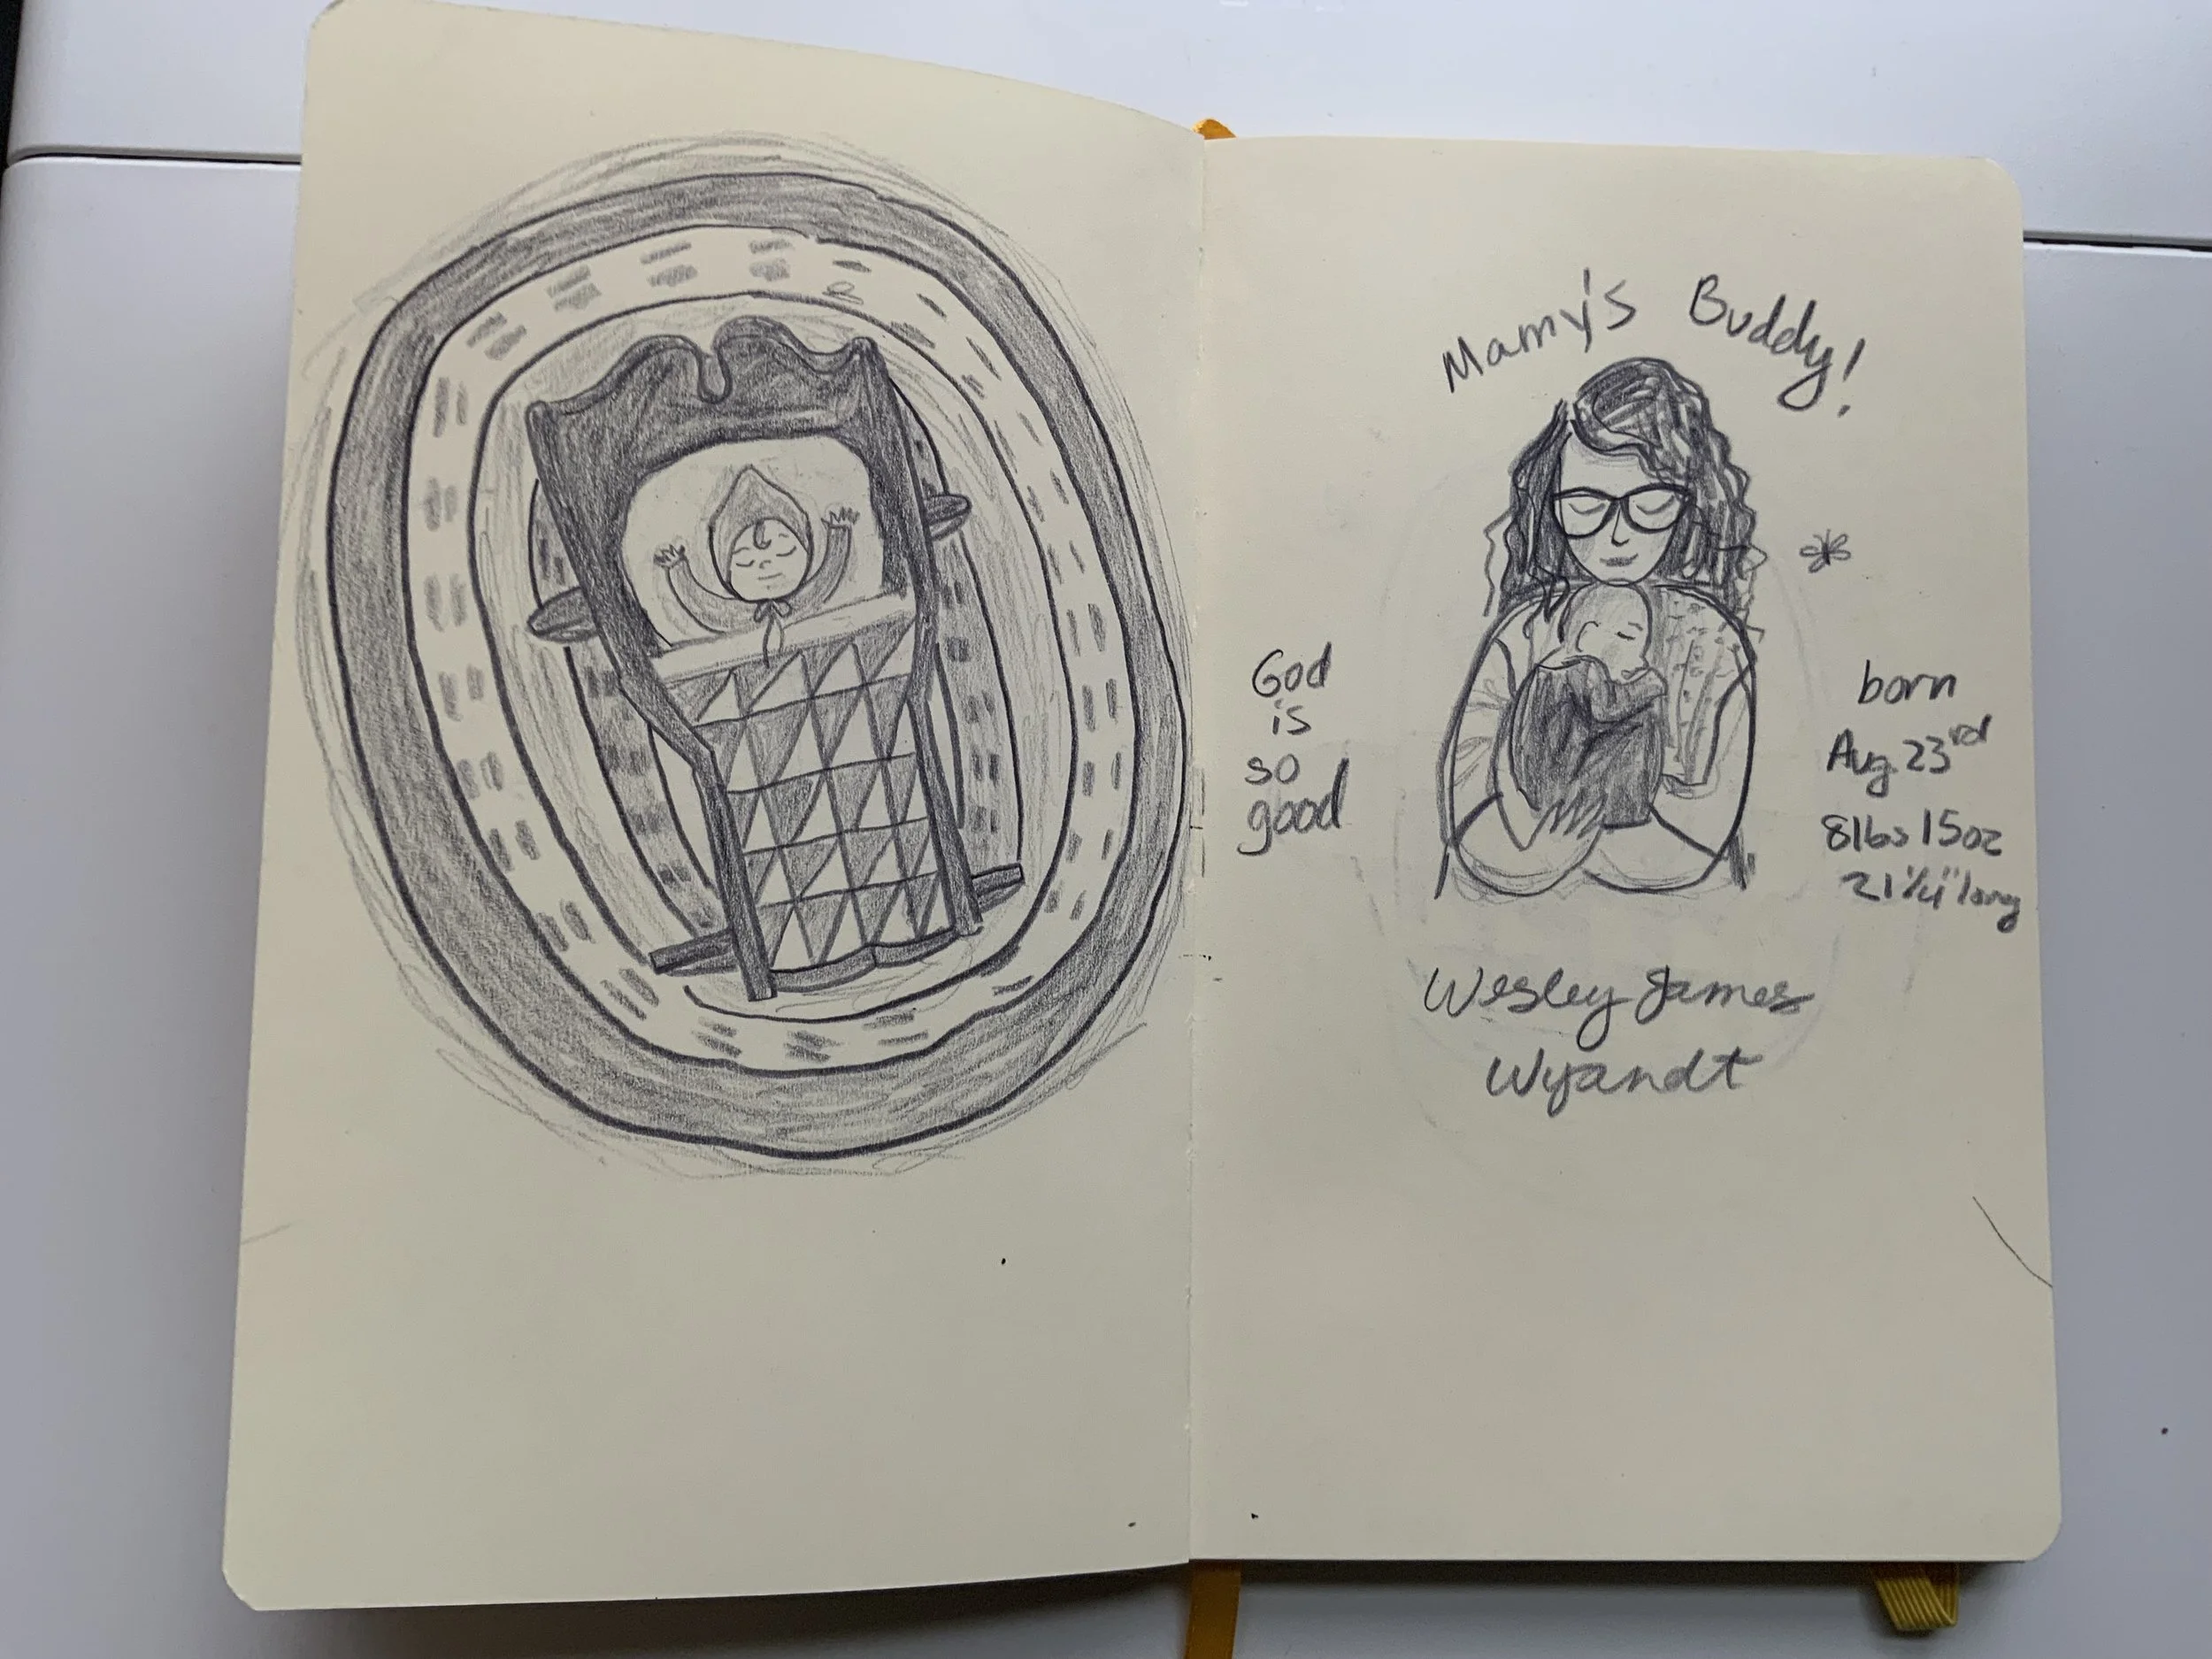 Mamy's Buddy!
God
is
so
good
born
Aug 23rd
8lbs 15oz
21 1/4" long
Wesley James
Wyandt